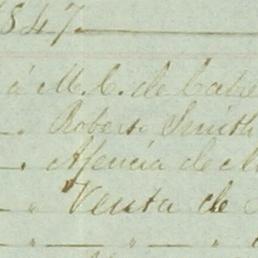 1847
á M. C. de
" Roberto Smith
" Agencia de
" Venta de
" " "